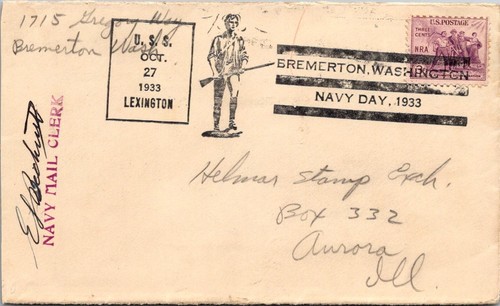 1715 Gregory Way
Bremerton Wash.
U.S.S.
OCT.
27
1933
LEXINGTON
U.S. POSTAGE
THREE
CENTS
NRA
BREMERTON, WASHINGTON
NAVY DAY, 1933
NAVY MAIL CLERK
Helmar Stamp Exch.
Box 332
Aurora
Ill.